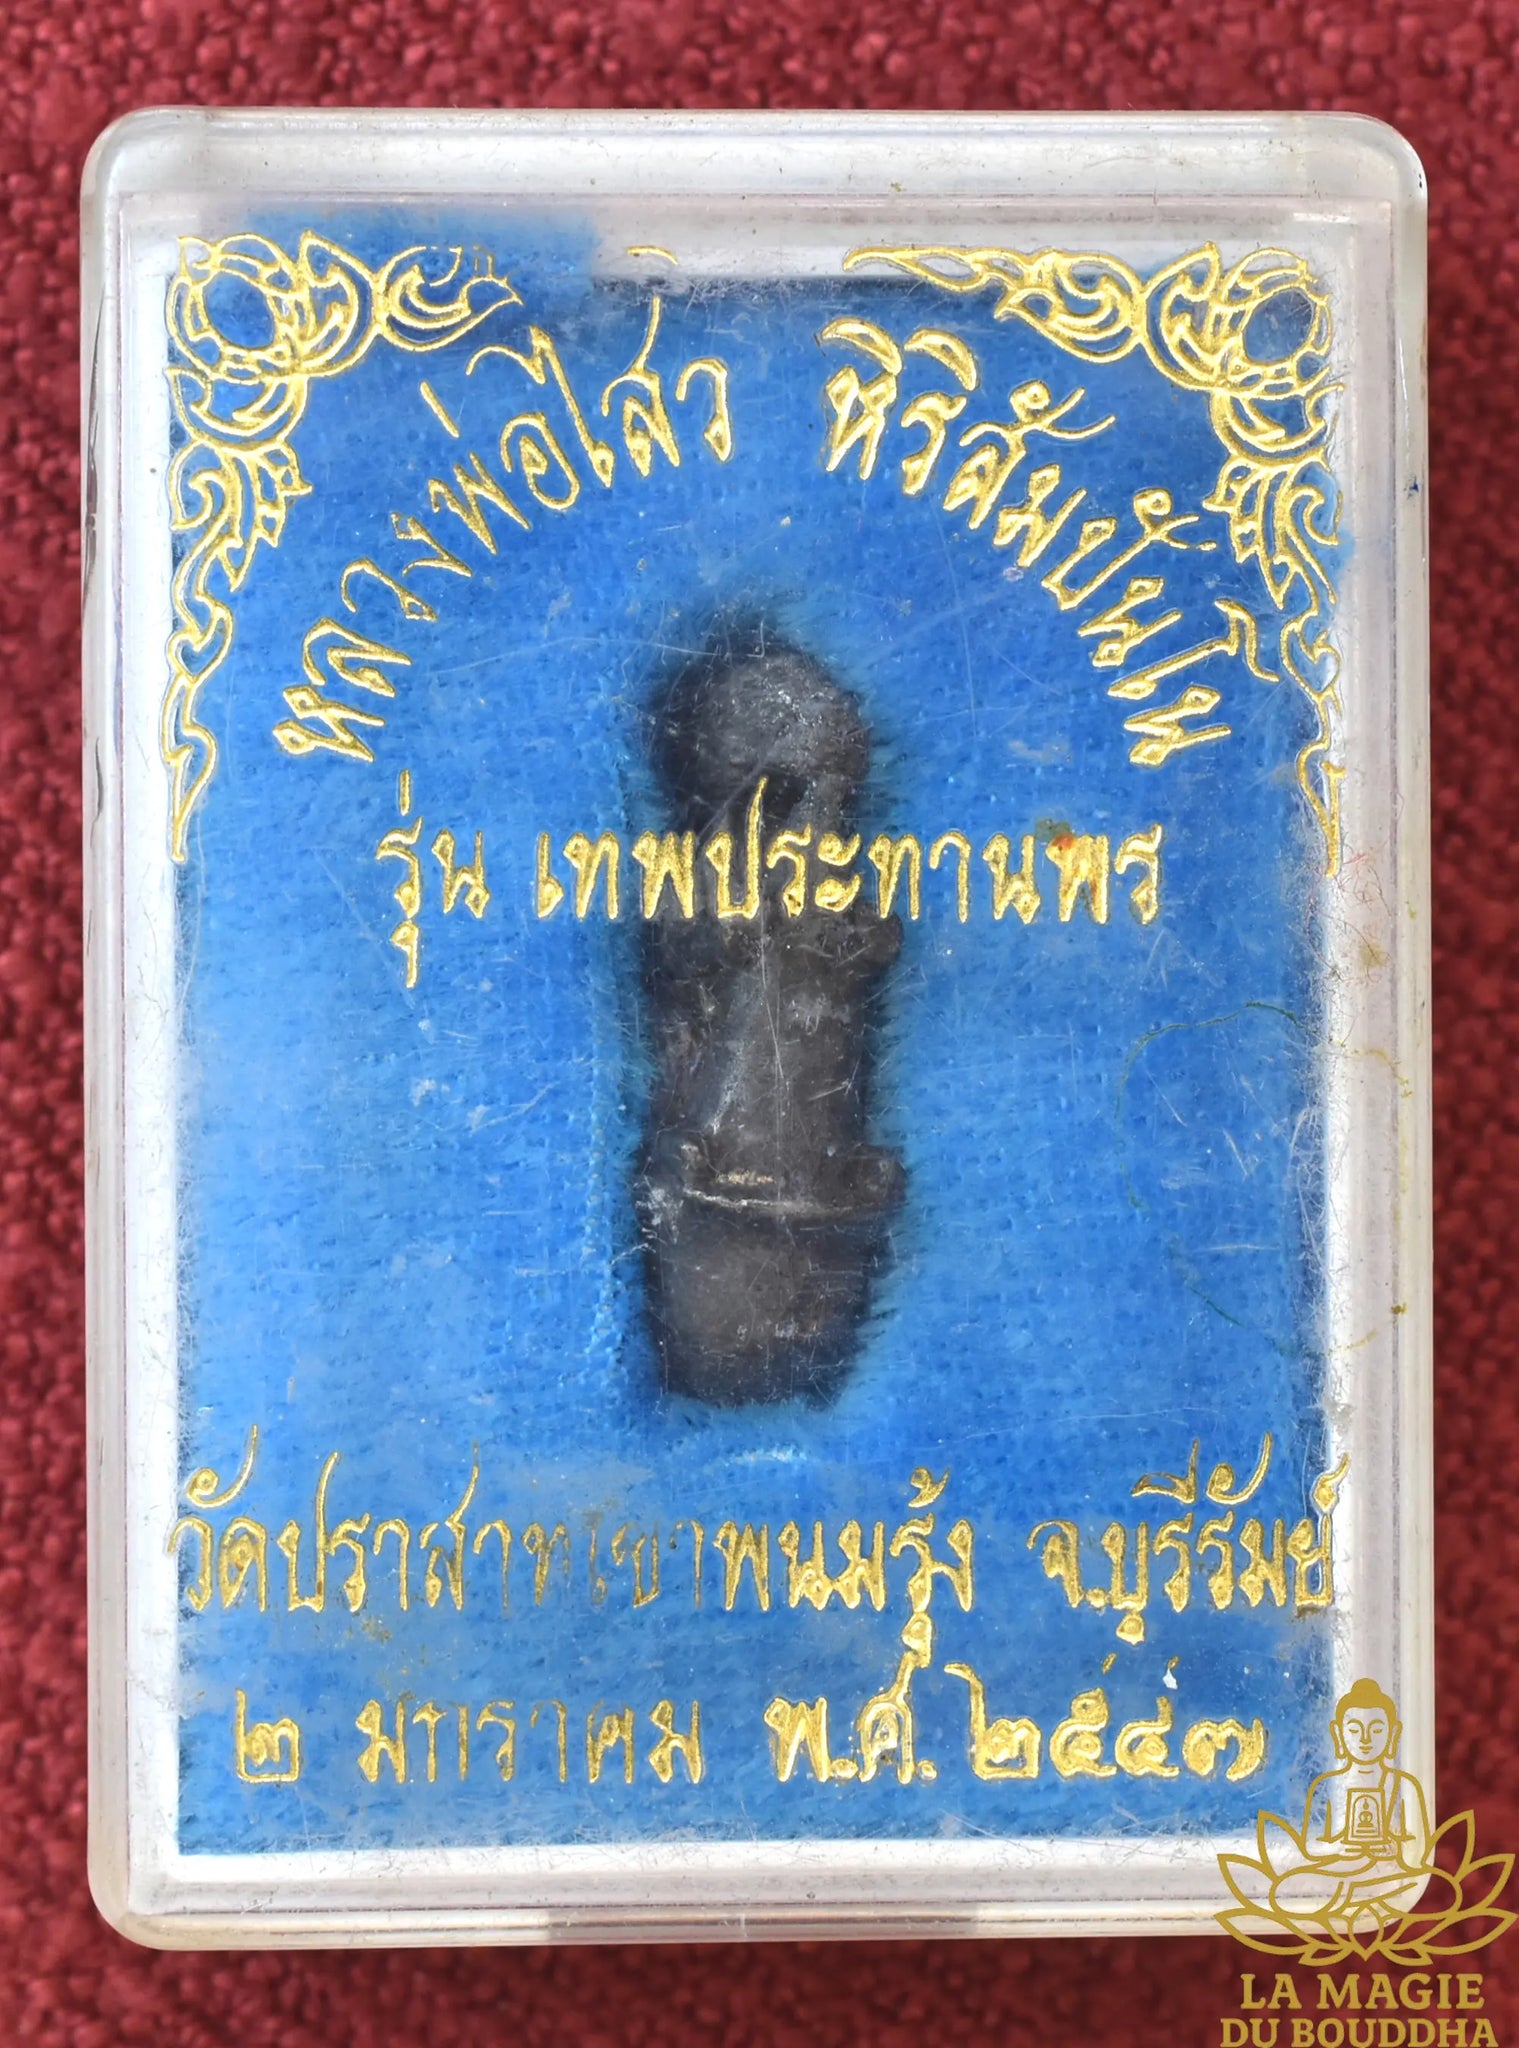 หลวงพ่อไสว หิริสัมปันโน
รุ่น เทพประทานพร
วัดปราสาทเขาพนมรุ้ง จ.บุรีรัมย์
๒ มกราคม พ.ศ. ๒๕๔๗
LA MAGIE
DU BOUDDHA